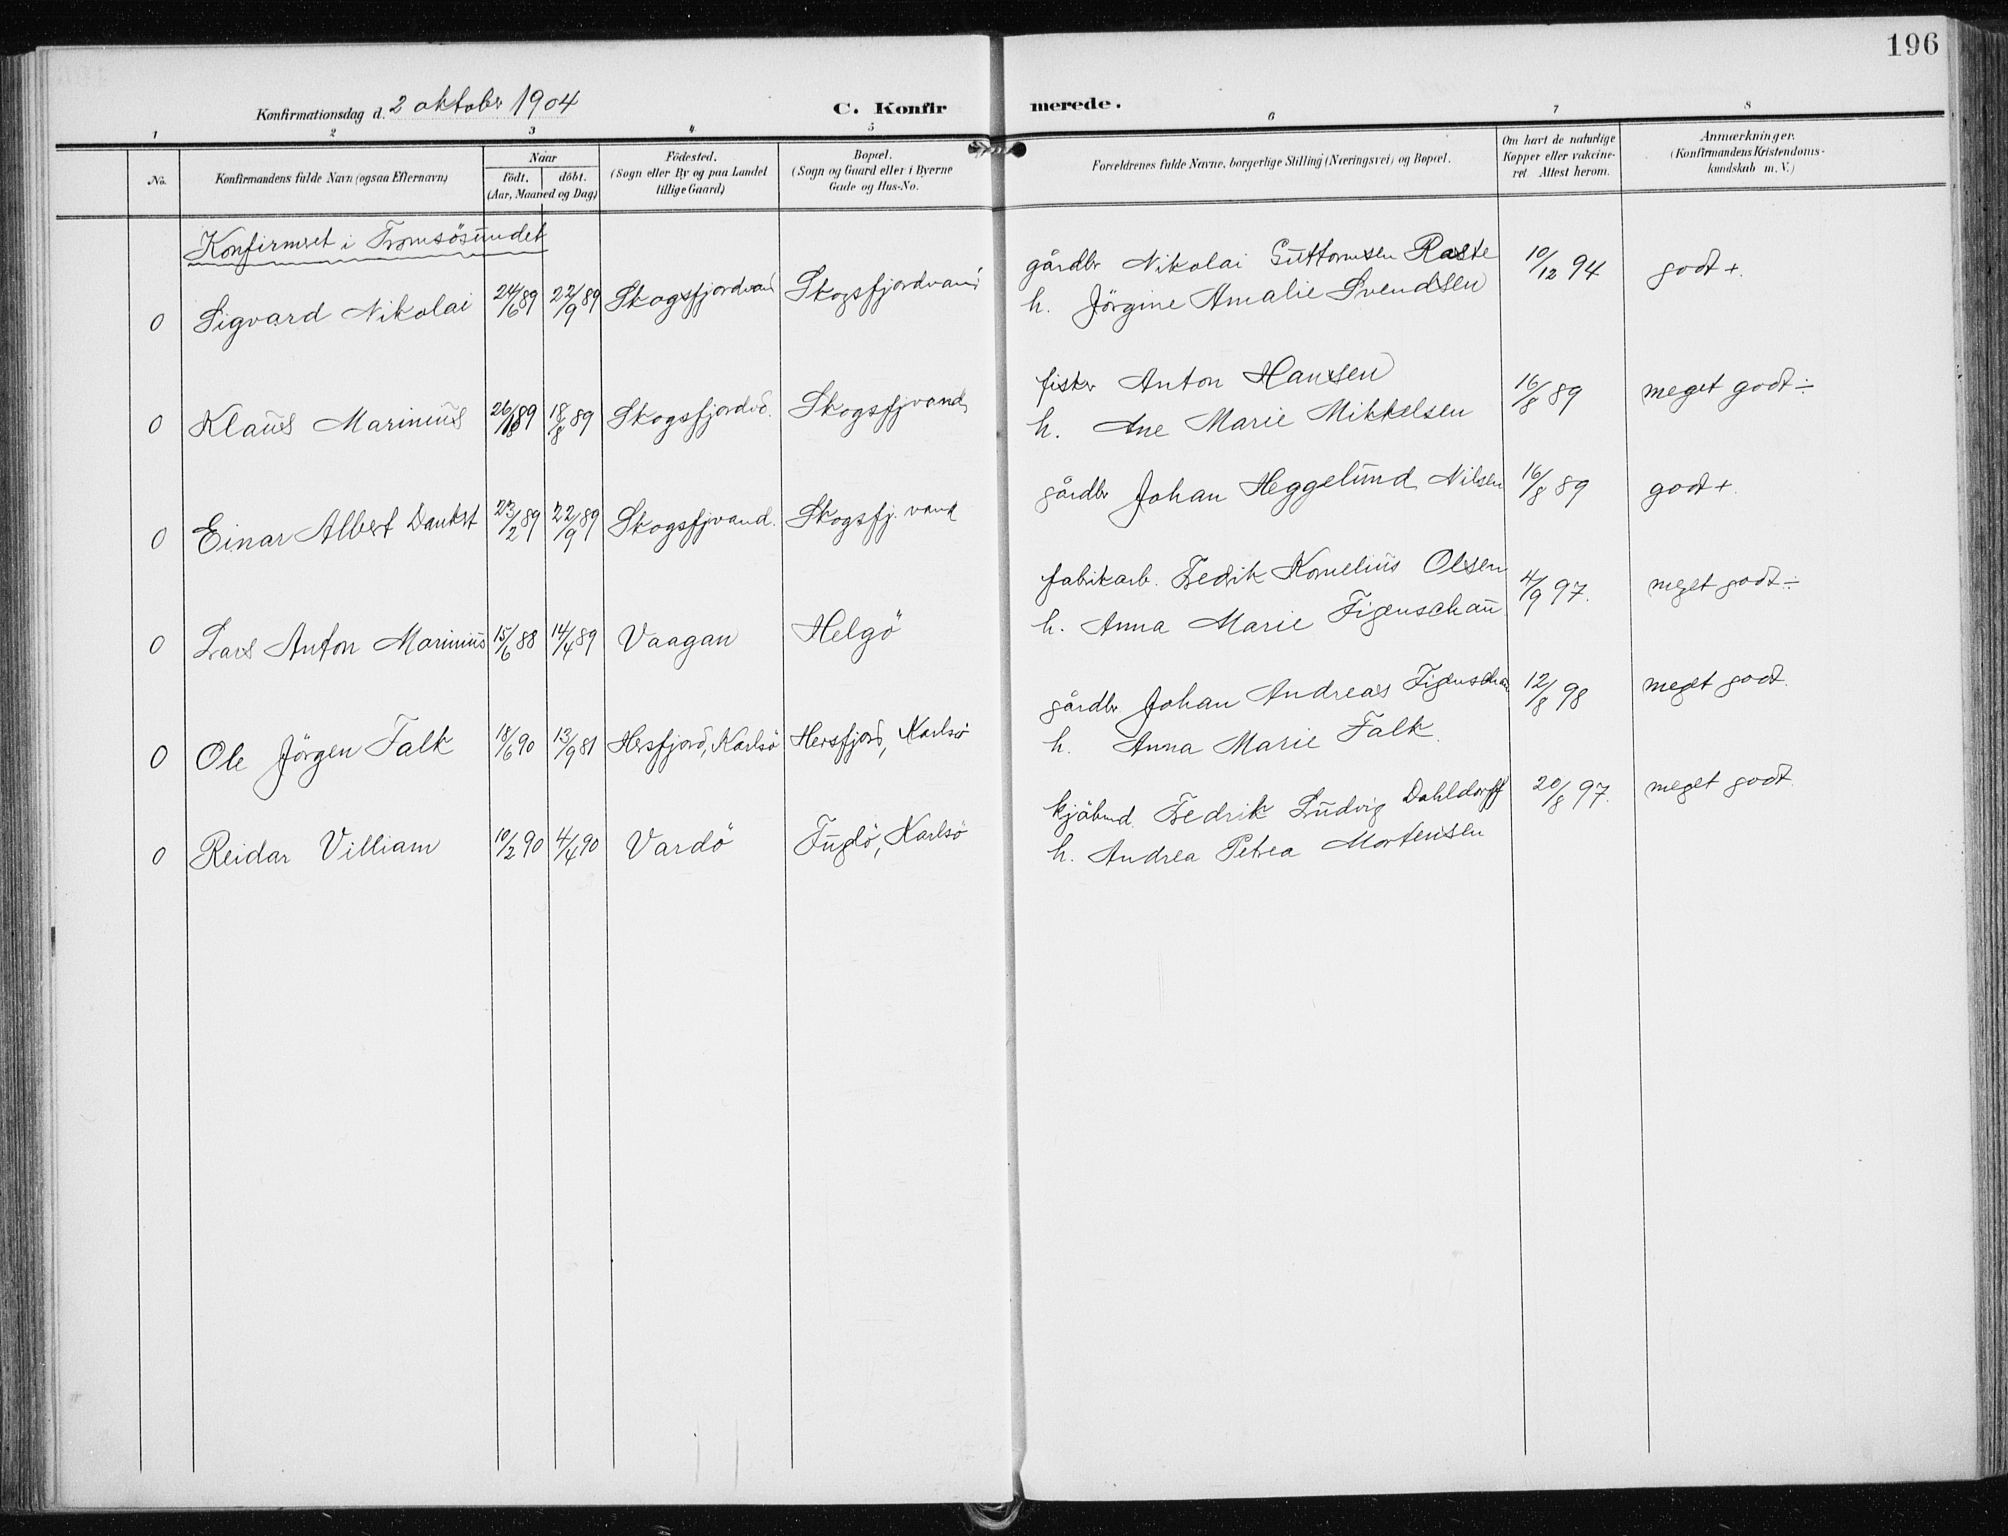 196
Konfirmationsdag d. 2 oktober 1904 C. Konfirmerede.
1 2 3 4 5 6 7 8
No. Konfirmandens fulde Navn (ogsaa Efternavn) Naar födt. döbt. (Aar, Maaned og Dag) Födested. (Sogn eller By og paa Landet tillige Gaard) Bopæl. (Sogn og Gaard eller i Byerne Gade og Hus-No. Forældrenes fulde Navne, borgerlige Stilling (Næringsvei) og Bopæl. Om havt de naturlige Kopper eller vakcineret Attest herom. Anmærkninger. (Konfirmandens Kristendomskundskab m. V.)
Konfirmeret i Tromsösundet
gårdbr Nikolai Guttormsen Raste 10/12 94 godt +.
0 Sigvard Nikolai 24/6 89 22/9 89 Skogsfjordvand Skogsfjordvand h. Jörgine Amalie Svendsen
fisker Anton Hansen 16/8 89 meget godt ÷
0 Klaus Marinius 18/8 89 Skogsfjordvd. Skogsfjvand h. Ane Marie Mikkelsen
gårdbr Johan Heggelund Nilsen 16/8 89 godt +.
0 Einar Albert Dankert 23/2 89 22/9 89 Skogsfjvand. Skogsfj. vand
fabrikarb. Fredrik Kornelius Olsen 4/9 97. meget godt ÷
0 Lars Anton Marinius 15/6 88 14/4 89 Vaagan Helgö h. Anna Marie Figenschau
gårdbr Johan Andreas Figenschau 12/8 98 meget godt.
0 Ole Jörgen Falk 18/6 90 13/9 81 Hersfjord, Karlsö Hersfjord, Karlsö h. Anna Marie Falk.
kjöbmd. Fredrik Ludvig Dahldorff 20/8 97. meget godt.
0 Reidar Villiam 10/2 90 4/4 90 Vardö Fuglö, Karlsö h. Andrea Petrea Mortensen